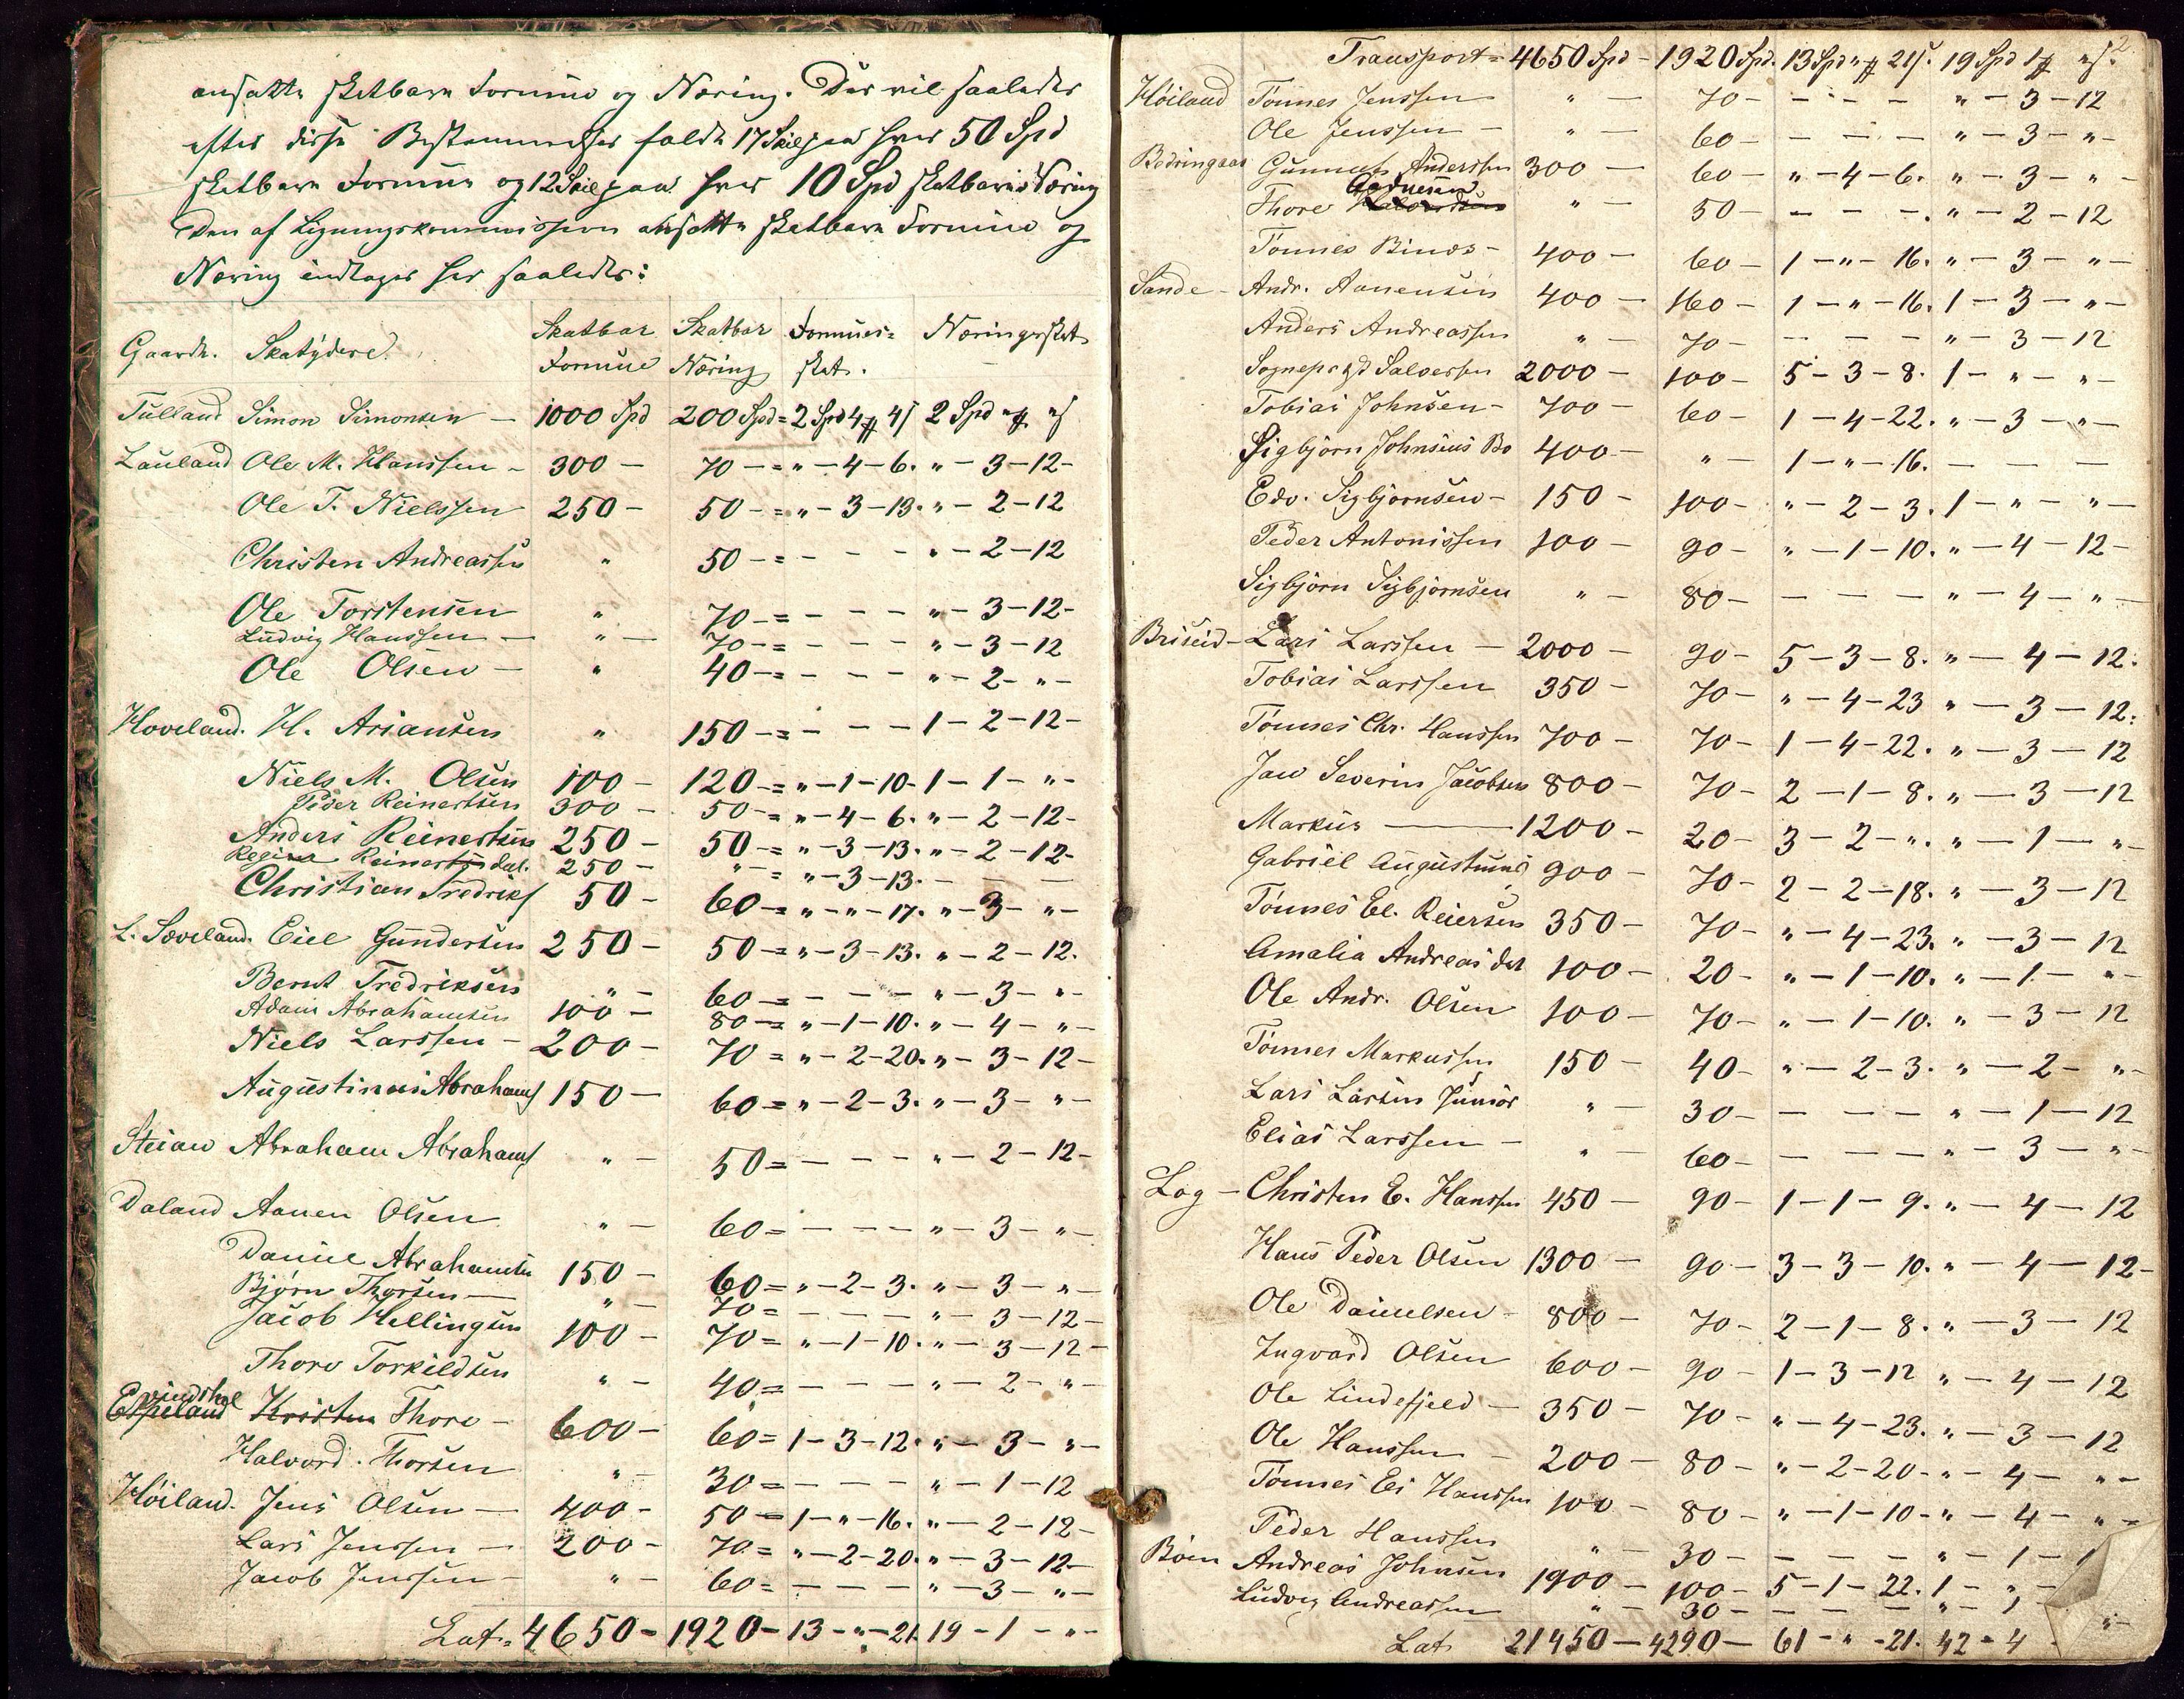 ansatte skatbare Formue og Næring. Der vil saaledes
efter disse Bestemmelser falde 17 Skil paa hver 50 Spd
skatbare Formue og 12 Skil paa hver 10 Spd skatbaris Næring
Den af Ligningskommissionen ansatte skatbare Formue og
Næring indtages her saaledes:
Gaarde. Skatydere. Skatbar Formue Skatbar Næring Formues= skat. Næringsskat
Tulland Simon Simonsen — 1000 Spd 200 Spd = 2 Spd 4 # 4 s 2 Spd " # " s
Lauland Ole M. Hanssen - 300 — 70 — = " — 4 — 6. " — 3 — 12 -
Ole T. Nielssen 250 — 50 — = " — 3 — 13. " — 2 — 12
Christen Andreassen " 50 — = — — — " — 2 — 12
Ole Torstensen " 70 — = — — — " — 3 — 12 -
Ludvig Hanssen — " — 70 — = — — — " — 3 — 12
Ole Olsen — " 40 — = — — — " — 2 — " —
Hoveland. H. Ariansen " 150 — = — — — 1 — 2 — 12 -
Niels M. Olsen 100 — 120 — = " — 1 — 10 - 1 — 1 — " -
Peder Reinertsen 300 — 50 — = " — 4 — 6. " — 2 — 12 -
Anders Reinertsen 250 — 50 — = " — 3 — 13. " — 2 — 12 -
Regine Reinertsdat. 250 — " — = " — 3 — 13. — — —
Christian Fredriks 50 — 60 — = " — " — 17. " — 3 — " —
L. Soveland. Eiel Gundersen 250 — 50 — = " — 3 — 13. " — 2 — 12.
Bernt Fredriksen " — 60 — = — — — " — 3 — " -
Adam Abrahamsen 100 — 80 — = " — 1 — 10. " — 4 — " —
Niels Larssen — 200 — 70 = " — 2 — 20. " — 3 — 12 -
Augustinus Abrahams 150 — 60 = " — 2 — 3. " — 3 — " —
Steian Abraham Abrahams " — 50 = — — — " — 2 — 12 -
Daland Aanen Olsen " — 60 = — — — " — 3 — " —
Daniel Abrahamsen 150 — 60 = " — 2 — 3. " — 3 — " —
Bjørn Thorsen — " — 70 = — — — " — 3 — 12 —
Jacob Hellingsen 100 — 70 = " — 1 — 10. " — 3 — 12 —
Thore Torkildsen " — 40 = — — — " — 2 — " —
Espeland Kristen Thore — 600 — 60 = 1 — 3 — 12. " — 3 — " —
Halvord. Thorsen " — 30 = — — — " — 1 — 12
Høiland. Jens Olsen — 400 — 50 = 1 — " — 16. " — 2 — 12 —
Lars Jenssen — 200 — 70 = " — 2 — 20. " — 3 — 12 —
Jacob Jenssen — " — 60 = — — — " — 3 — " —
Lat. = 4650 = 1920 — 13 — " — 21. 19 — 1 — " —
2.
Transport = 4650 Spd — 1920 Spd. 13 Spd " # 21 s. 19 Spd 1 # " s.
Høiland Tönnes Jenssen " — 70 — — — — " — 3 — 12
Ole Jenssen — " — 60 — — — — " — 3 — " -
Bedringaas Gunnuf Anderssen 300 — 60 — " — 4 — 6. " — 3 — " -
Thore " — 50 — — — —. " — 2 — 12
Tönnes Binds — 400 — 60 — 1 — " — 16. " — 3 — " —
Sande — Andr. Aanensen 400 — 160 — 1 — " — 16. 1 — 3 — " —
Anders Andreassen " — 70 — — — — " — 3 — 12
Sogneprest Salvesen 2000 — 100 — 5 — 3 — 8. 1 — " — " —
Tobias Johnsen — 700 — 60 — 1 — 4 — 22. " — 3 — " —
Sigbjörn Johnsens Bo 400 — " — 1 — " — 16. — — —
Edv. Sigbjornsen — 150 — 100 — " — 2 — 3. 1 — " — " —
Peder Antonissen 100 — 90 — " — 1 — 10. " — 4 — 12 —
Sigbjörn Sigbjörnsen " — 80 — — — — " — 4 — " —
Briseid — Lars Larssen — 2000 — 90 — 5 — 3 — 8. " — 4 — 12.
Tobias Larssen 350 — 70 — " — 4 — 23 " — 3 — 12.
Tönnes Chr. Hanssen 700 — 70 — 1 — 4 — 22. " — 3 — 12
Jan Severin Jacobsen 800 — 70 — 2 — 1 — 8. " — 3 — 12
Markus — 1200 — 20 — 3 — 2 — ". " — 1 — " —
Gabriel Augustinus 900 — 70 — 2 — 2 — 18. " — 3 — 12
Tönnes El. Reiersen 350 — 70 — " — 4 — 23. " — 3 — 12
Amalia Andreas dat 100 — 20 — " — 1 — 10. " — 1 — " -
Ole Andr. Olsen 100 — 70 — " — 1 — 10. " — 3 — 12
Tönnes Markussen 150 — 40 — " — 2 — 3. " — 2 — " —
Lars Larsen Junior " — 30 — — — — " — 1 — 12
Elias Larssen — " — 60 — — — — " — 3 — " —
Log — Christen E. Hanssen 450 — 90 — 1 — 1 — 9. " — 4 — 12
Hans Peder Olsen 1300 — 90 — 3 — 3 — 10. " — 4 — 12 —
Ole Danielsen — 800 — 70 — 2 — 1 — 8. " — 3 — 12
Ingvard Olsen 600 — 90 — 1 — 3 — 12 " — 4 — 12
Ole Lindefjeld — 350 — 70 — " — 4 — 23. " — 3 — 12
Ole Hanssen — 200 — 80 — " — 2 — 20 - " — 4 — " —
Tönnes Ei Hanssen 100 — 80 — " — 1 — 10 - " — 4 — " —
Peder Hanssen " — 30 — — — — " — 1 —
Böen Andreas Johnsen 1900 — 100 — 5 — 1 — 22. 1 — " —
Ludvig Andreassen " — 30 — — — — " — 1 —
Lat. 21450 — 4290 — 61 — " — 21. 42 — 4 " —